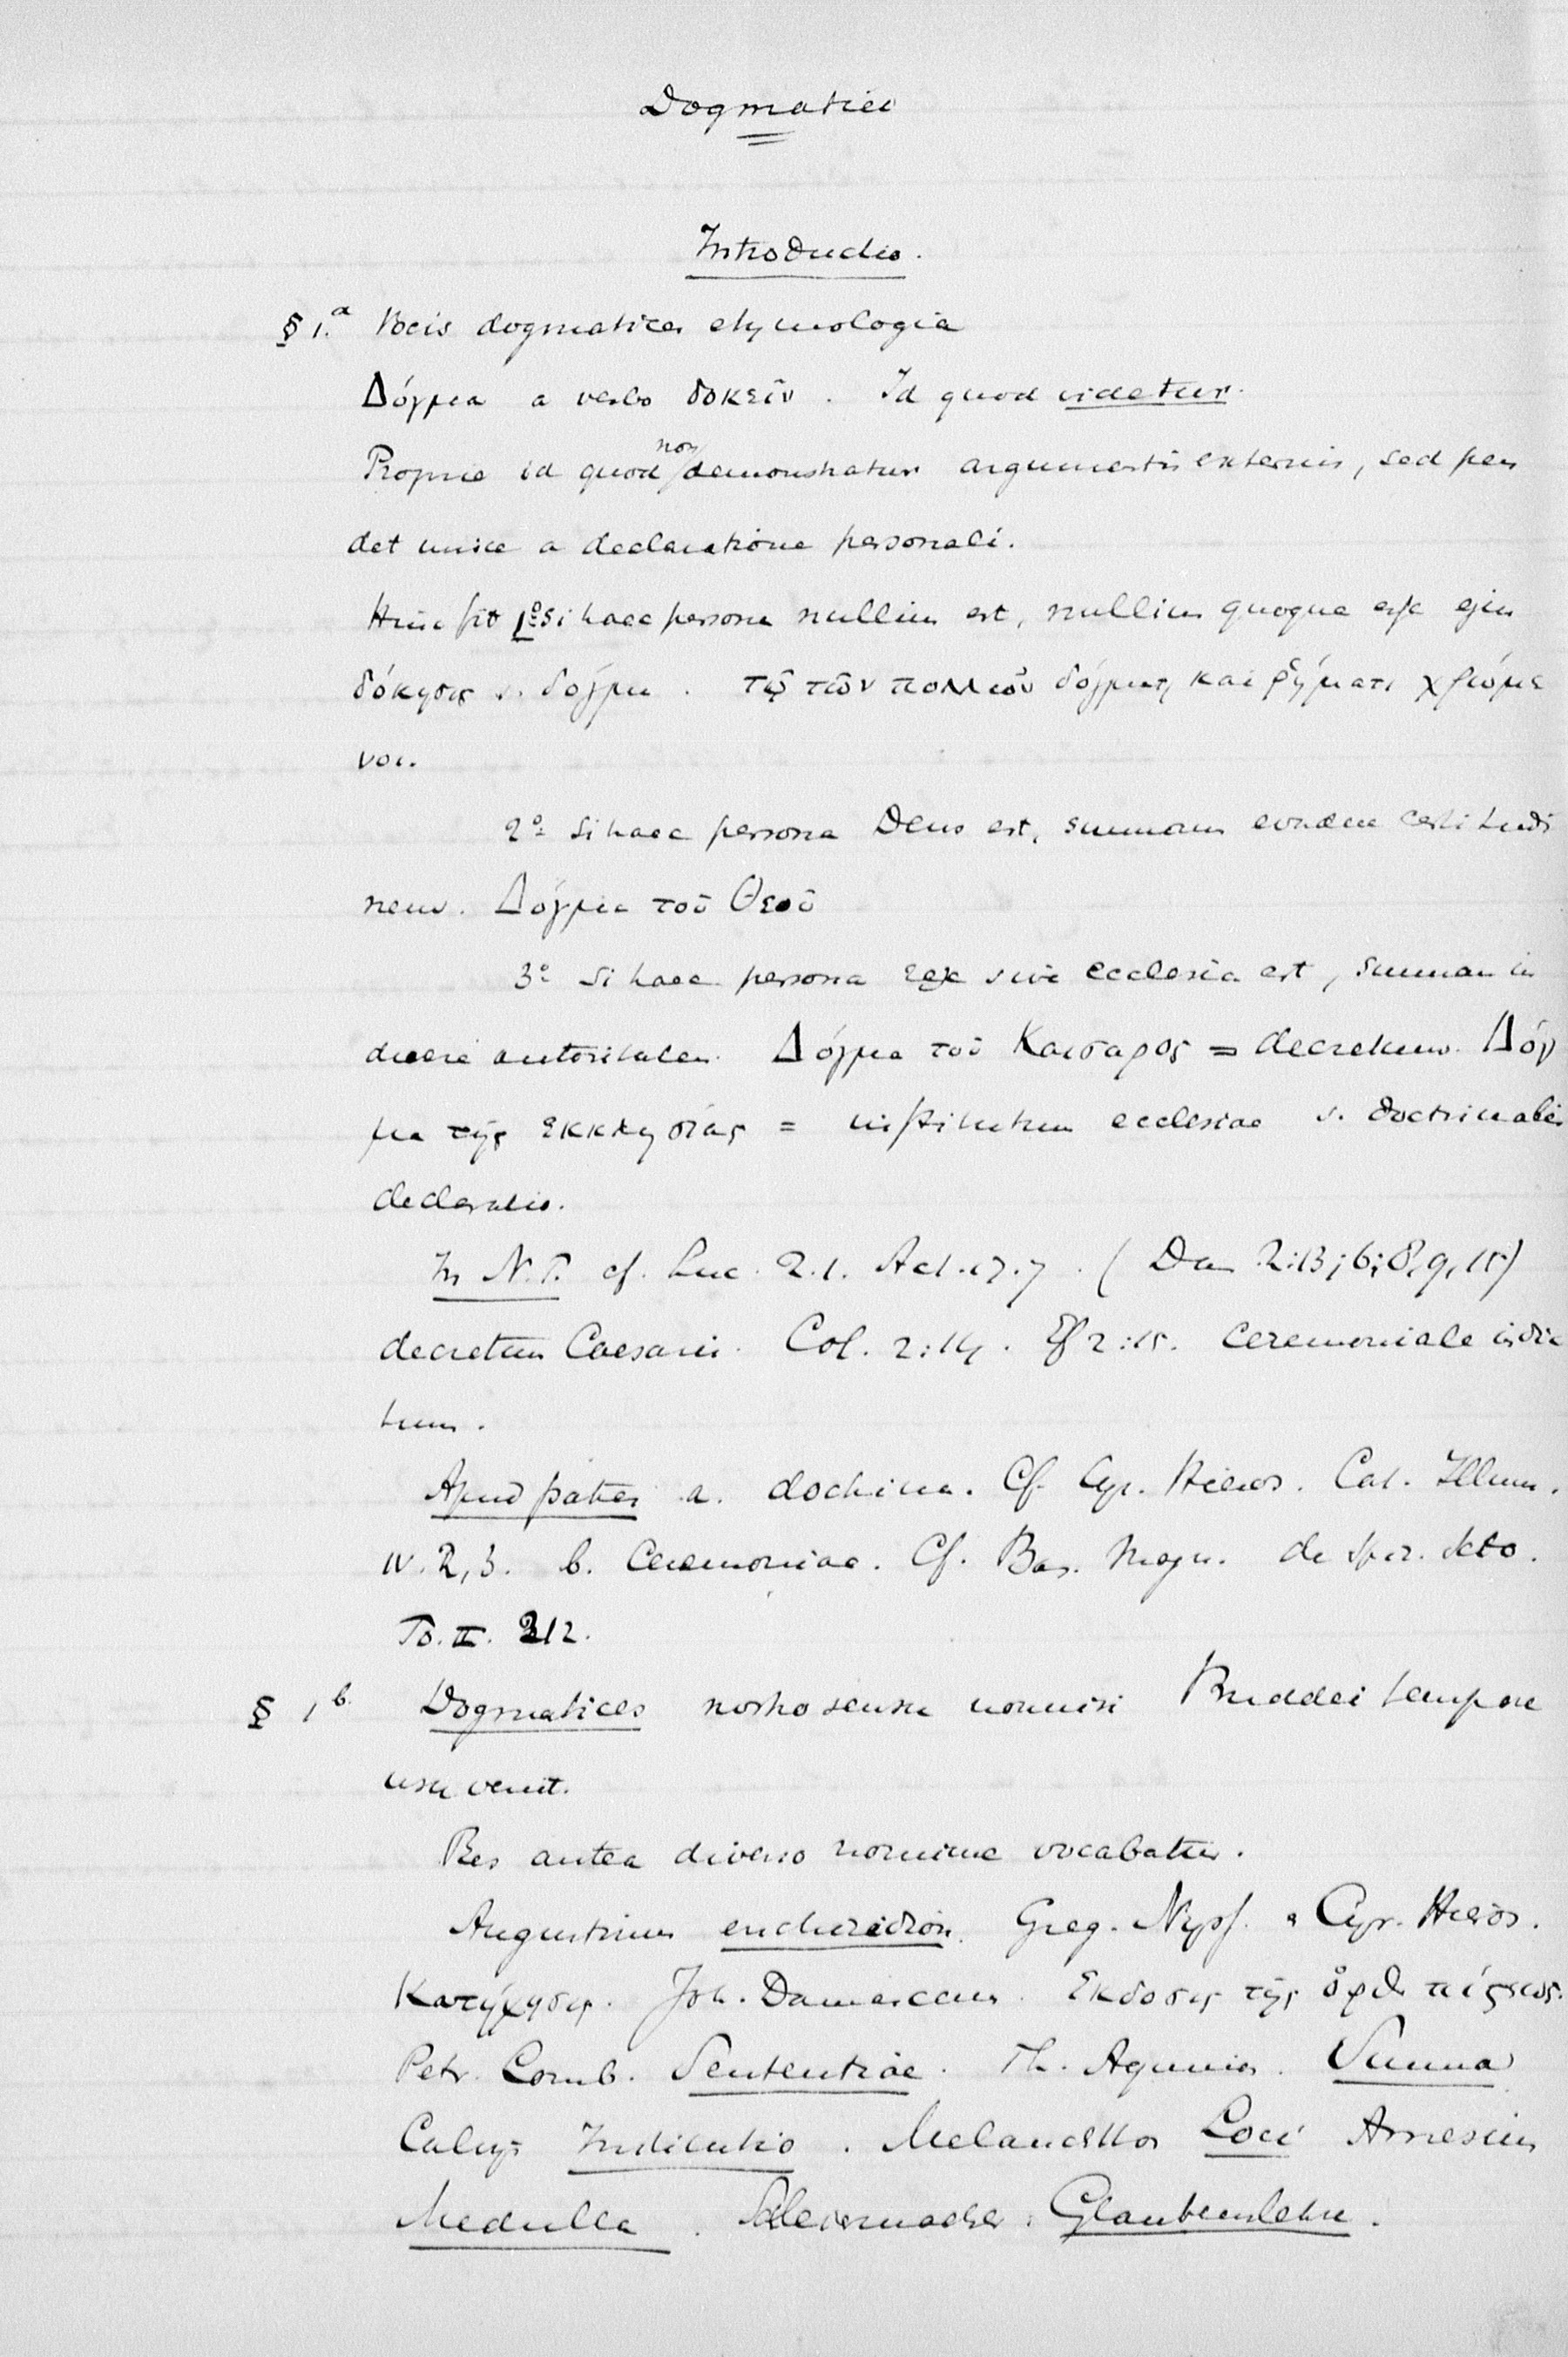 Dogmatice
Introductio.
§ 1.a Vocis dogmatices etymologia
Δόγμα a verbo δοκεῖν. Id quod videtur.
Proprie id quod non demonstratur argumentis externis, sed pen
det unice a declaratione personali.
Hinc fit 1º si haec persona nullius est, nullius quoque esse ejus
δόκησις s. δόγμα. τῷ τῶν πολλῶν δόγματι καὶ ῥήματι χρώμε
νοι.
2º si haec persona Deus est, summam certitudi
nem. Δόγμα τοῦ Θεοῦ
3º si haec persona rex sive ecclesia est, summam in
duere autoritatem. Δόγμα τοῦ Καισαρος = decretum. Δόγ
μα τῆς εκκλησίας = institutum ecclesiae s. doctrinalis
declaratio.
In N.T. cf. Luc. 2.1. Act. 17.7. (Dan 2:13; 6:8, 9, 15)
decretum Caesaris. Col. 2:14. Ef 2:15. Ceremoniale institu
tum.
Apud patres a. doctrina. Cf. Cyr. Hieros. Cat. Illum.
IV. 2, 3. b. Ceremoniae. Cf. Bas. Magn. de Spir. Scto.
To. II. 212.
§ 1 b. Dogmatices nostro sensu nonnisi Buddei tempore
usu venit.
Res antea diverso nomine vocabatur.
Augustinus enchiridion. Greg. Nyss. & Cyr. Hieros.
Κατήχησις. Joh. Damascenus. Εκδοσις τῆς ὀρθ πίστεως.
Petr. Lomb. Sententiae. Th. Aquinas. Summa
Calvijn Institutio. Melanchton Loci Amesius
Medulla. Schleiermacher. Glaubenslehre.